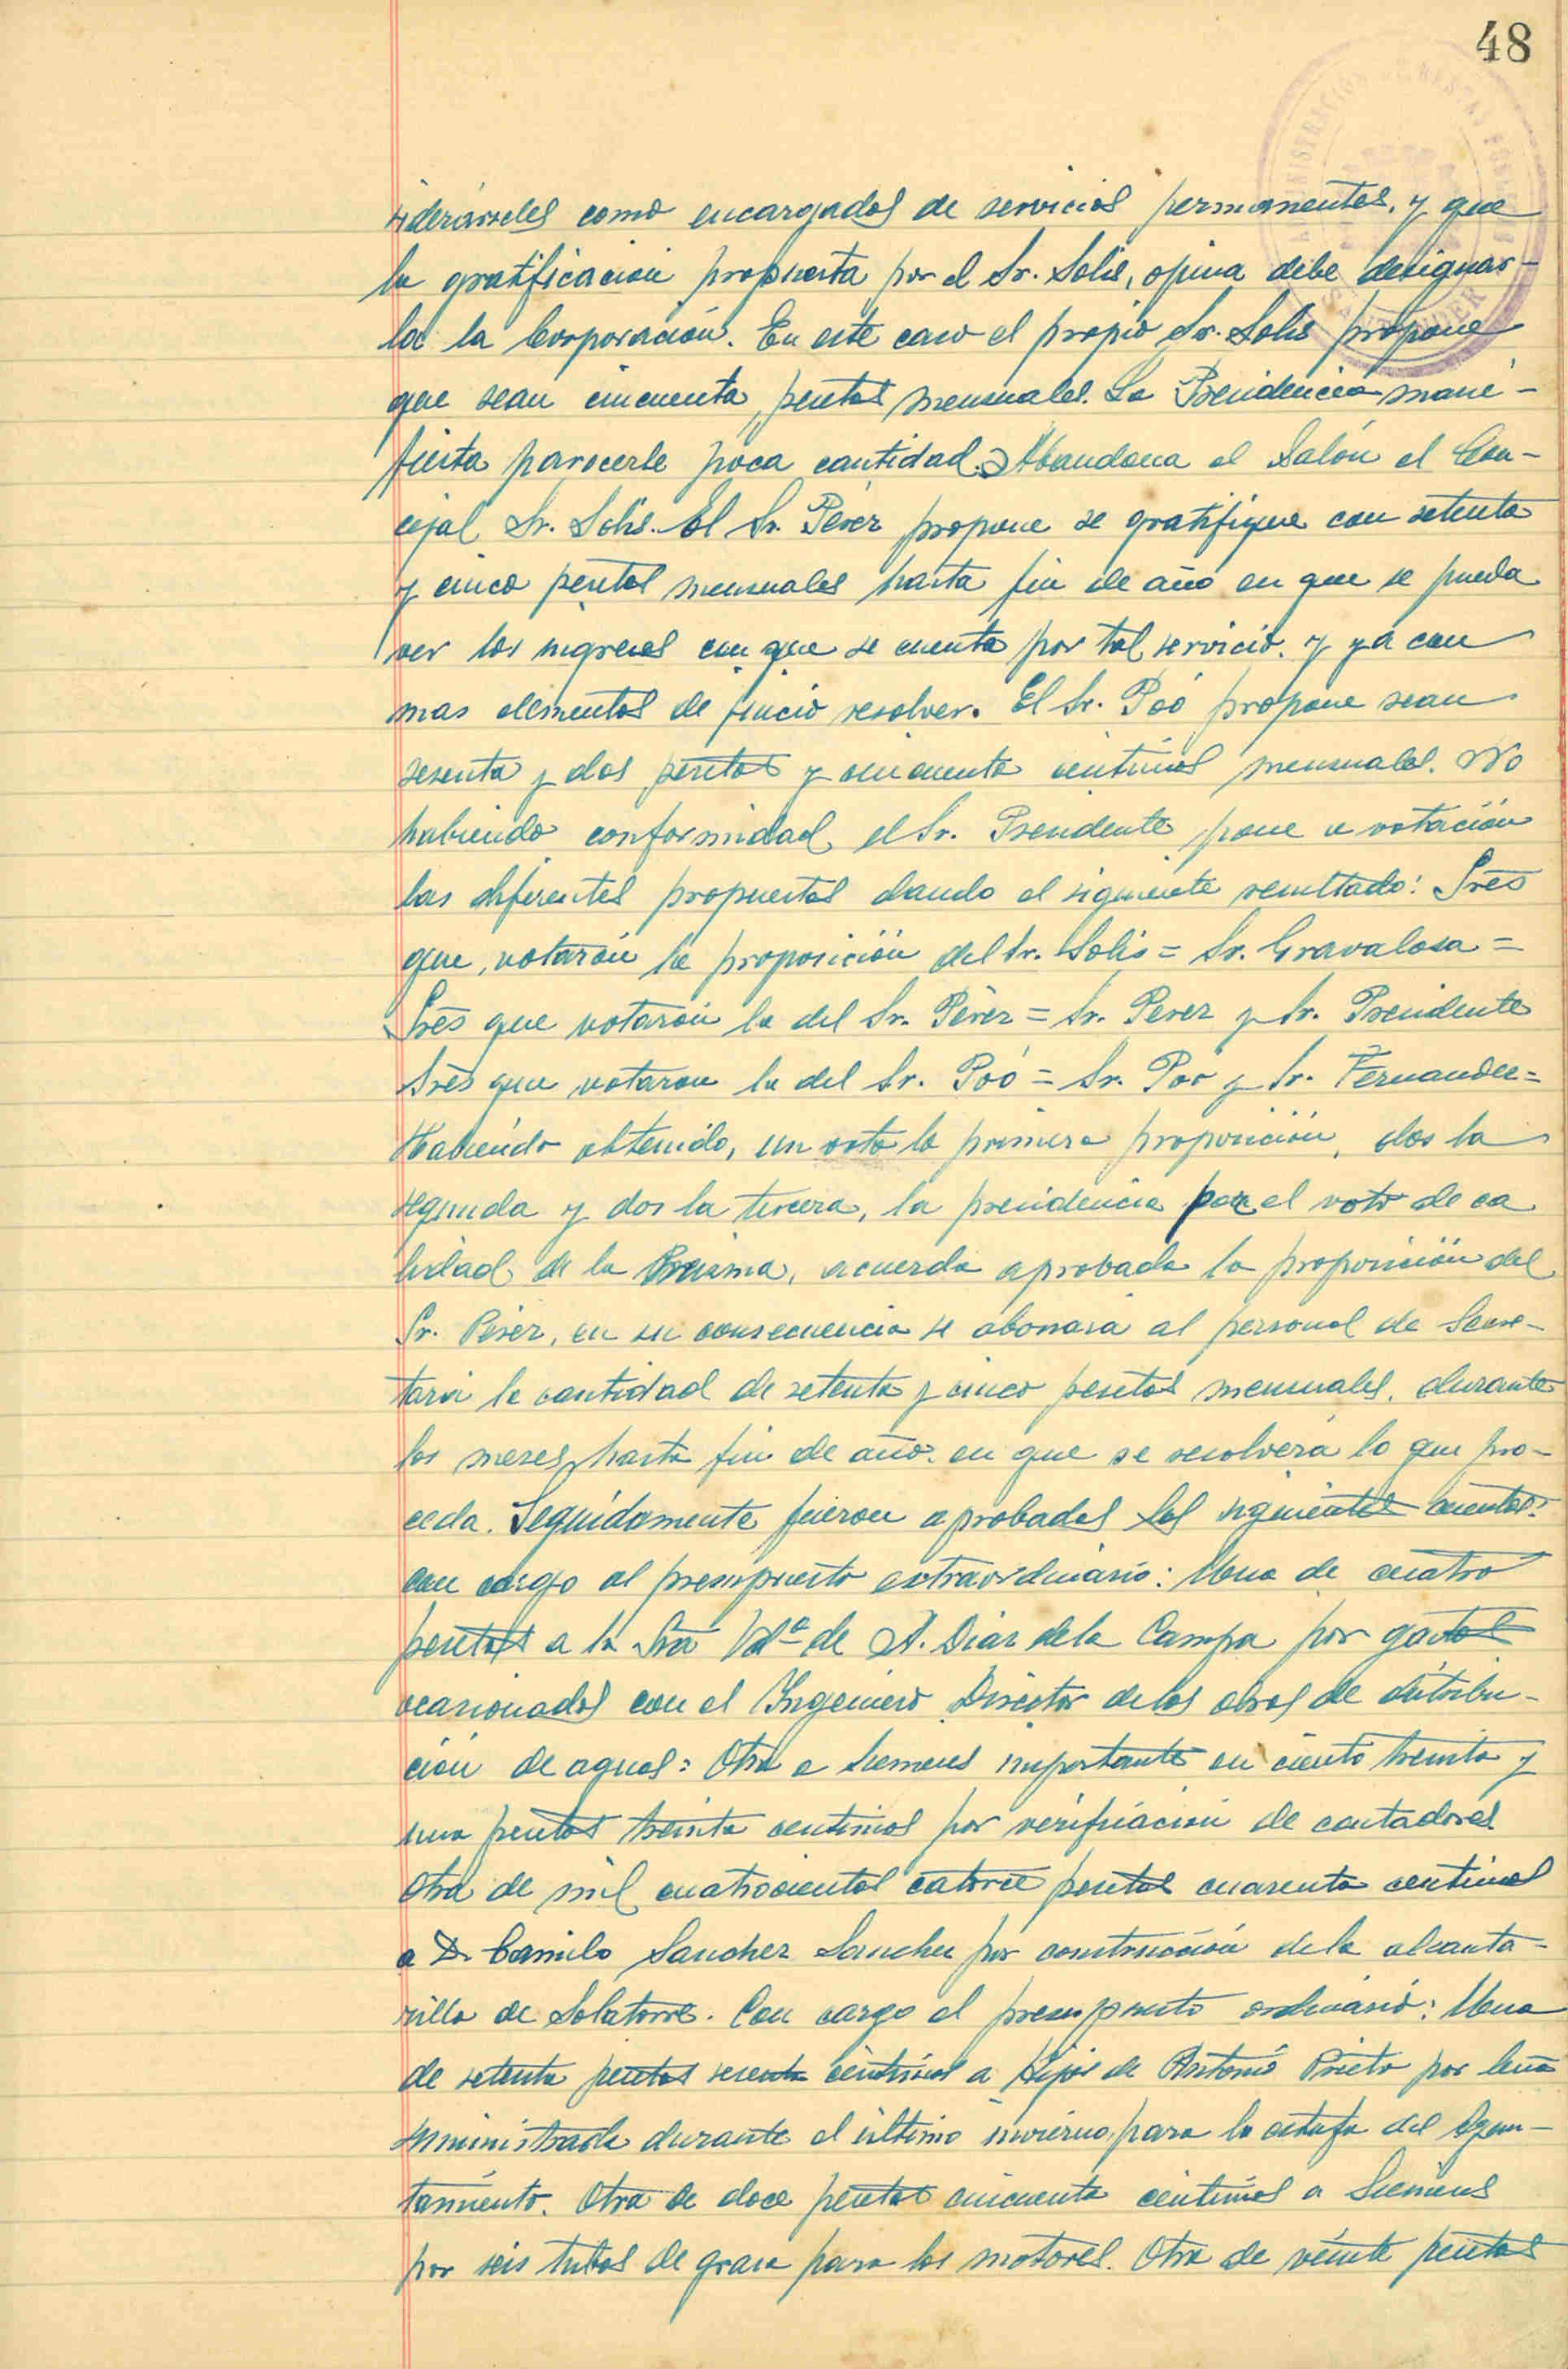 48
ADMINISTRACIÓN DE RENTAS PÚBLICAS
SANTANDER
siderárseles como encargados de servicios permanentes, y que
la gratificación propuesta por el Sr. Solis, opina debe designar-
la la Corporación. En este caso el propio Sr. Solis propone
que sean cincuenta, pesetas mensuales. La Presidencia mani-
fiesta parecerle poca cantidad. Abandona el Salón el Con-
cejal Sr. Solis. El Sr. Pérez propone se gratifique con setenta
y cinco pesetas mensuales hasta fin de año en que se pueda
ver los ingresos con que se cuenta por tal servicio. y ya con
mas elementos de juicio resolver. El Sr. Poó propone sean
sesenta y dos pesetas y cincuenta centimos mensuales. No
habiendo conformidad el Sr. Presidente pone a votación
las diferentes propuestas dando el siguiente resultado: Sres
que votarón la proposición del Sr. Solis = Sr. Gravalosa =
Sres que votarón la del Sr. Pérez = Sr. Perez y Sr. Presidente
Sres que votaron la del Sr. Poó = Sr. Poó y Sr. Fernandez =
Habiendo obtenido, un voto la primera proposición, dos la
segunda y dos la tercera, la presidencia por el voto de ca
lidad de la misma, acuerda aprobada la proposición del
Sr. Pérez, en su consecuencia se abonara al personal de Secre-
taria la cantidad de setenta y cinco pesetas mensuales, durante
los meses hasta fin de año en que se resolverá lo que pro-
ceda. Seguidamente fueron aprobadas las siguientes cuentas:
con cargo al presupuesto extraordinario: Una de cuatro
pesetas a la Sra Vdª de A. Diaz de la Campa por gastos
ocasionados con el Ingeniero Director de las obras de distribu-
ción de aguas: Otra a Siemens importante en ciento treinta y
una pesetas treinta centimos por verificación de contadores
Otra de mil cuatrocientas catorce pesetas cuarenta centimos
a D. Camilo Sanchez Sanchez por construcción de la alcanta-
rilla de Solatorre. Con cargo al presupuesto ordinario: Una
de setenta pesetas sesenta céntimos a Hijos de Antonio Prieto por leña
suministrada durante el último invierno, para la estufa del Ayun-
tamiento. Otra de doce pesetas cincuenta centimos a Siemens
por seis tubos de grasa para los motores. Otra de veinte pesetas